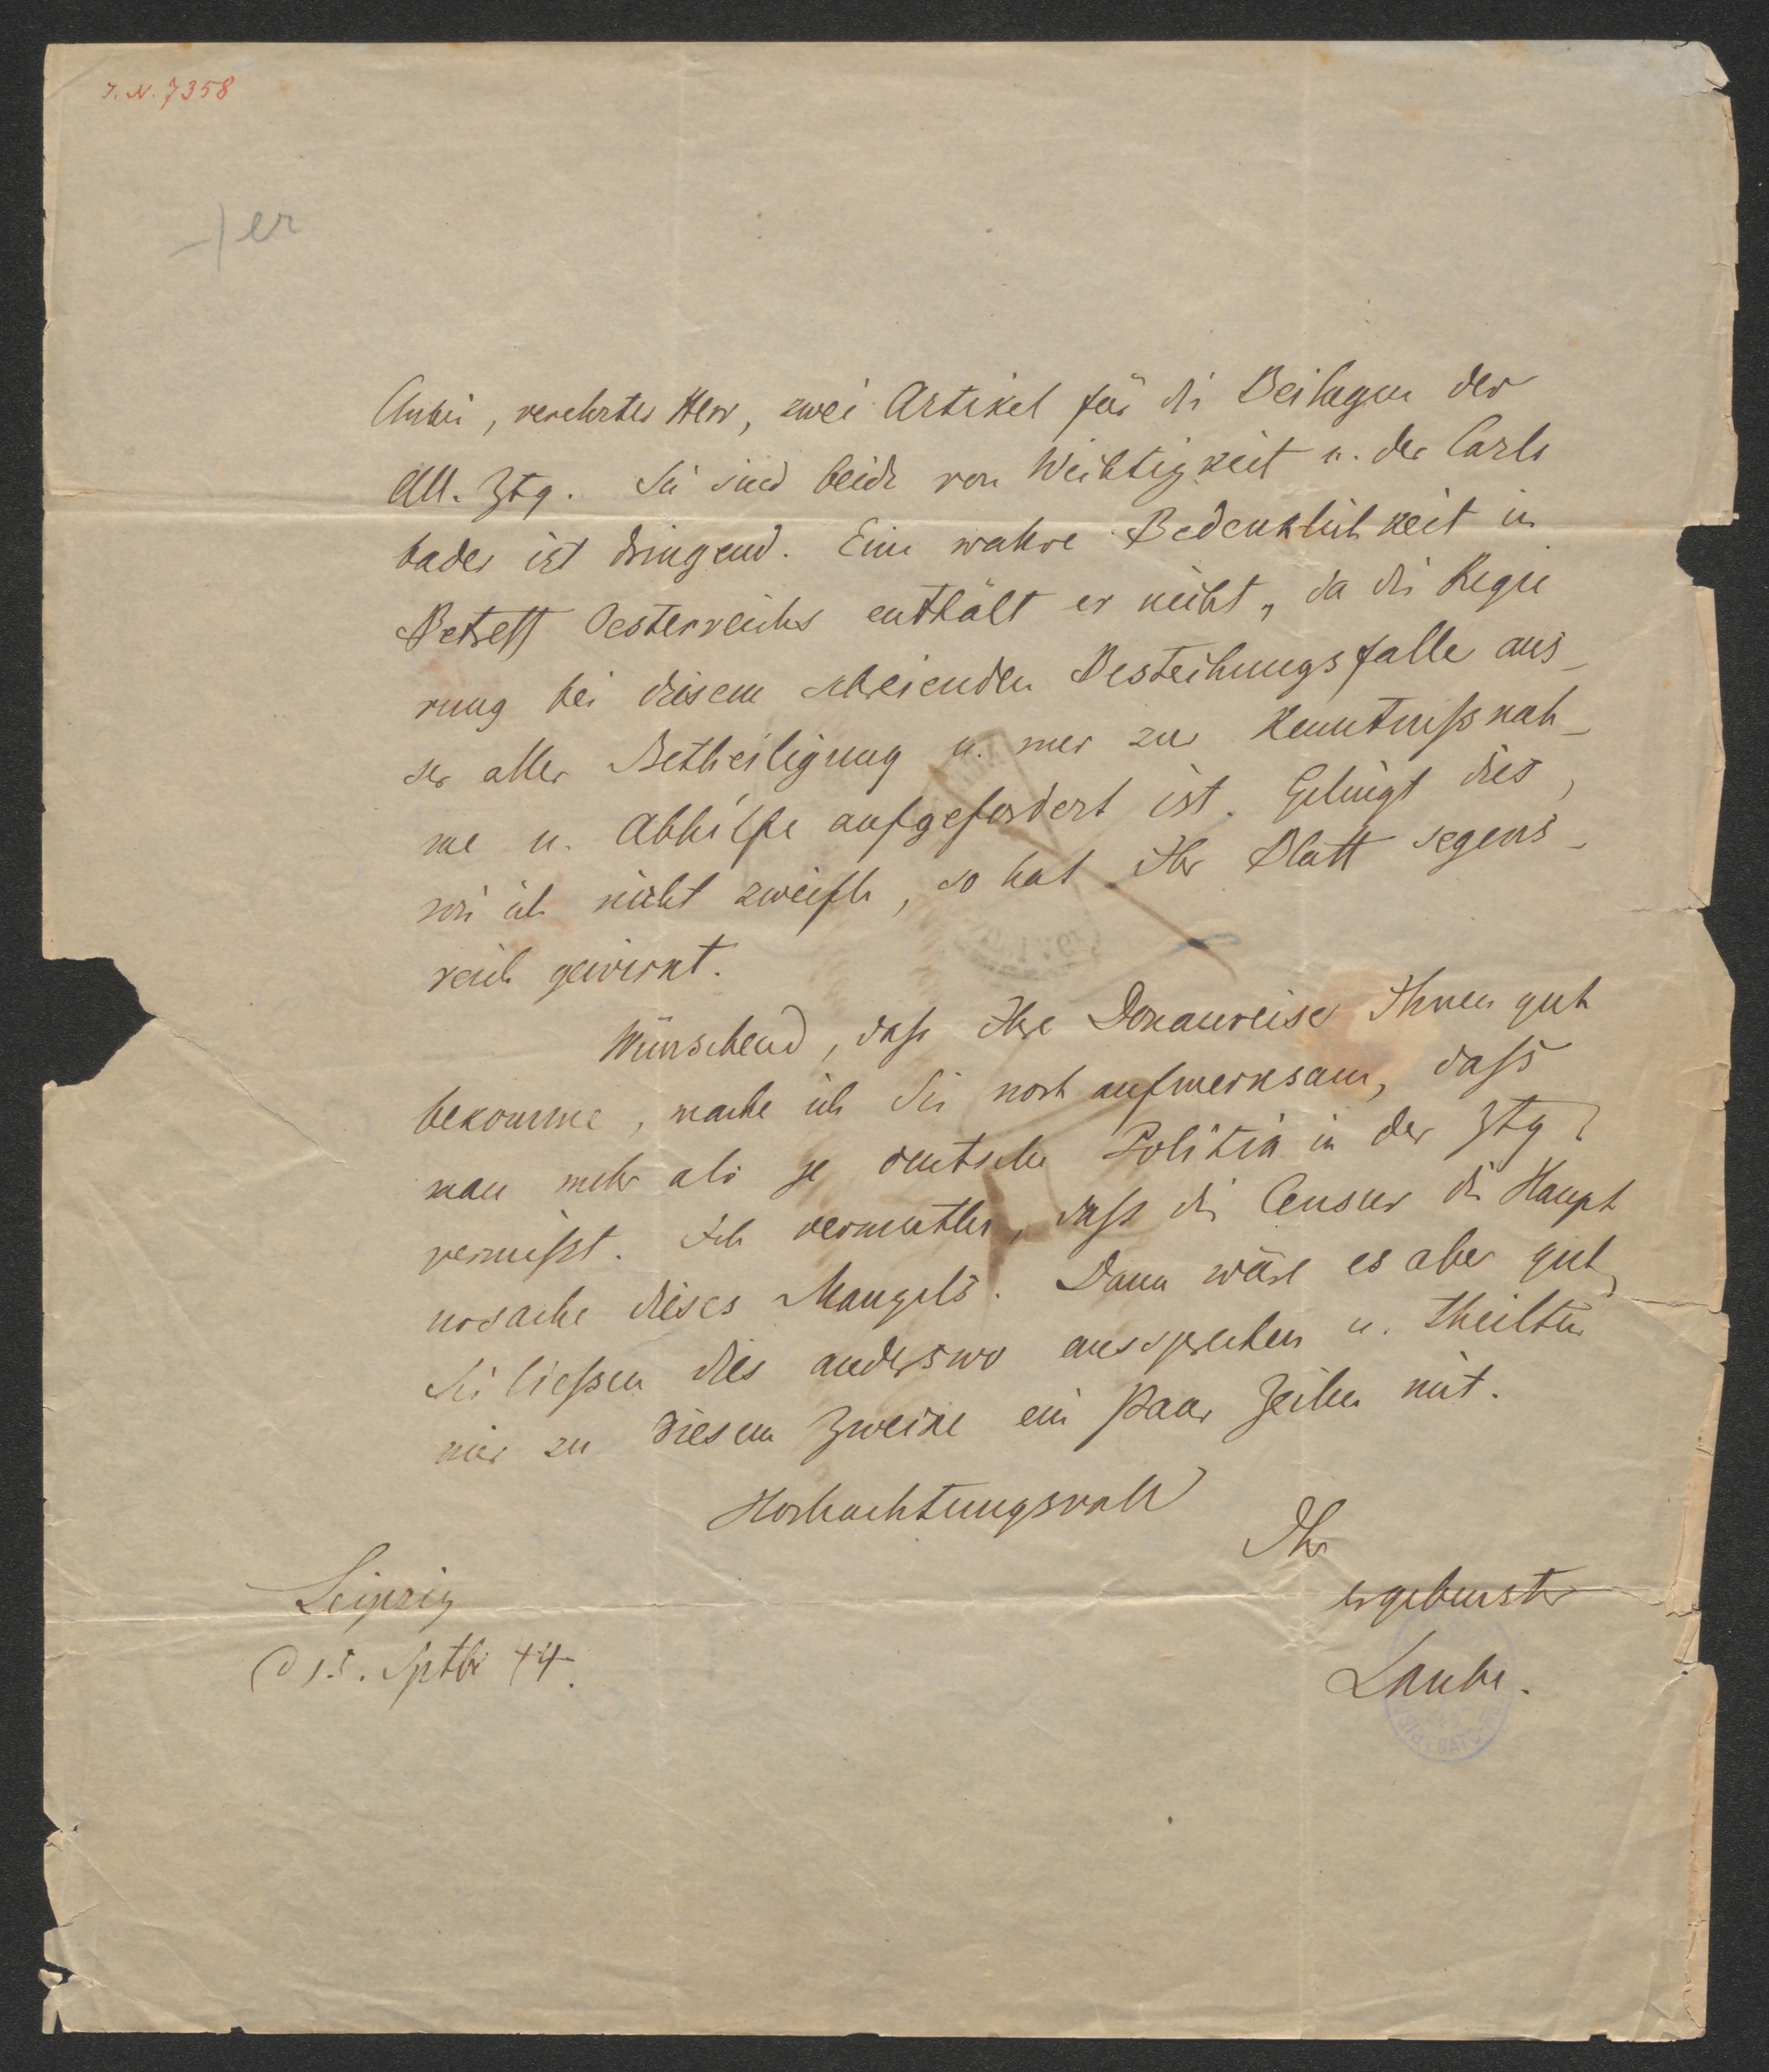 I. N. 7358
Anbei, verehrter Herr, zwei Artikel für die Beilagen der
All. Ztg. Sie sind beide von Wichtigkeit u. der Carls
bader ist dringend. Eine wahre Bedenklichkeit in
Betreff Oesterreichs enthält er nicht, da die Regie
rung bei diesem schreienden Bestechungsfalle aus-
ser aller Betheiligung u. nur zur Kenntnißnah-
me u. Abhilfe aufgefordert ist. Gelingt dies,
wie ich nicht zweifle, so hat Ihr Blatt segens-
reich gewirkt.
Wünschend, daß Ihre Donaureise Ihnen gut
bekomme, mache ich Sie noch aufmerksam, daß
man mehr als je deutsche Politik in der Ztg
vermißt. Ich vermuthe, daß die Censur die Haupt
ursache dieses Mangels. Dann wäre es aber gut,
Sie ließen dies anderswo aussprechen u. theilten
mir zu diesem Zwecke ein paar Zeilen mit.
Hochachtungsvoll
Ihr
ergebenster
Laube.
Leipzig
d 15. Sptbr 44.